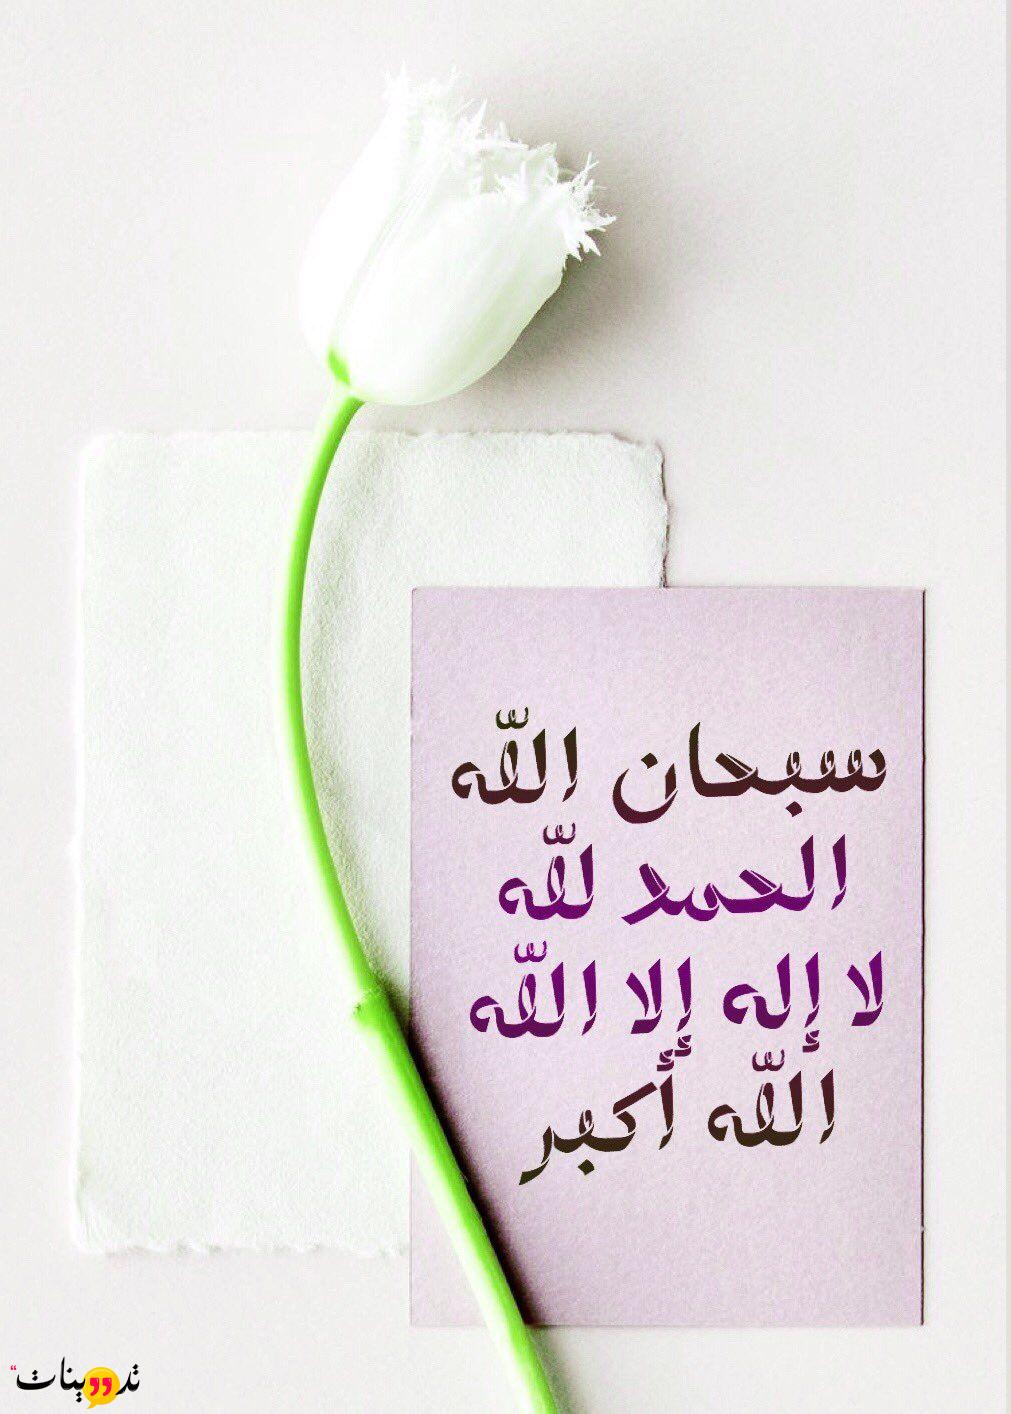 سبحان اللّٰه
الحمد للّٰه
لا إله إلا اللّٰه
اللّٰه أكبر
تدووينات